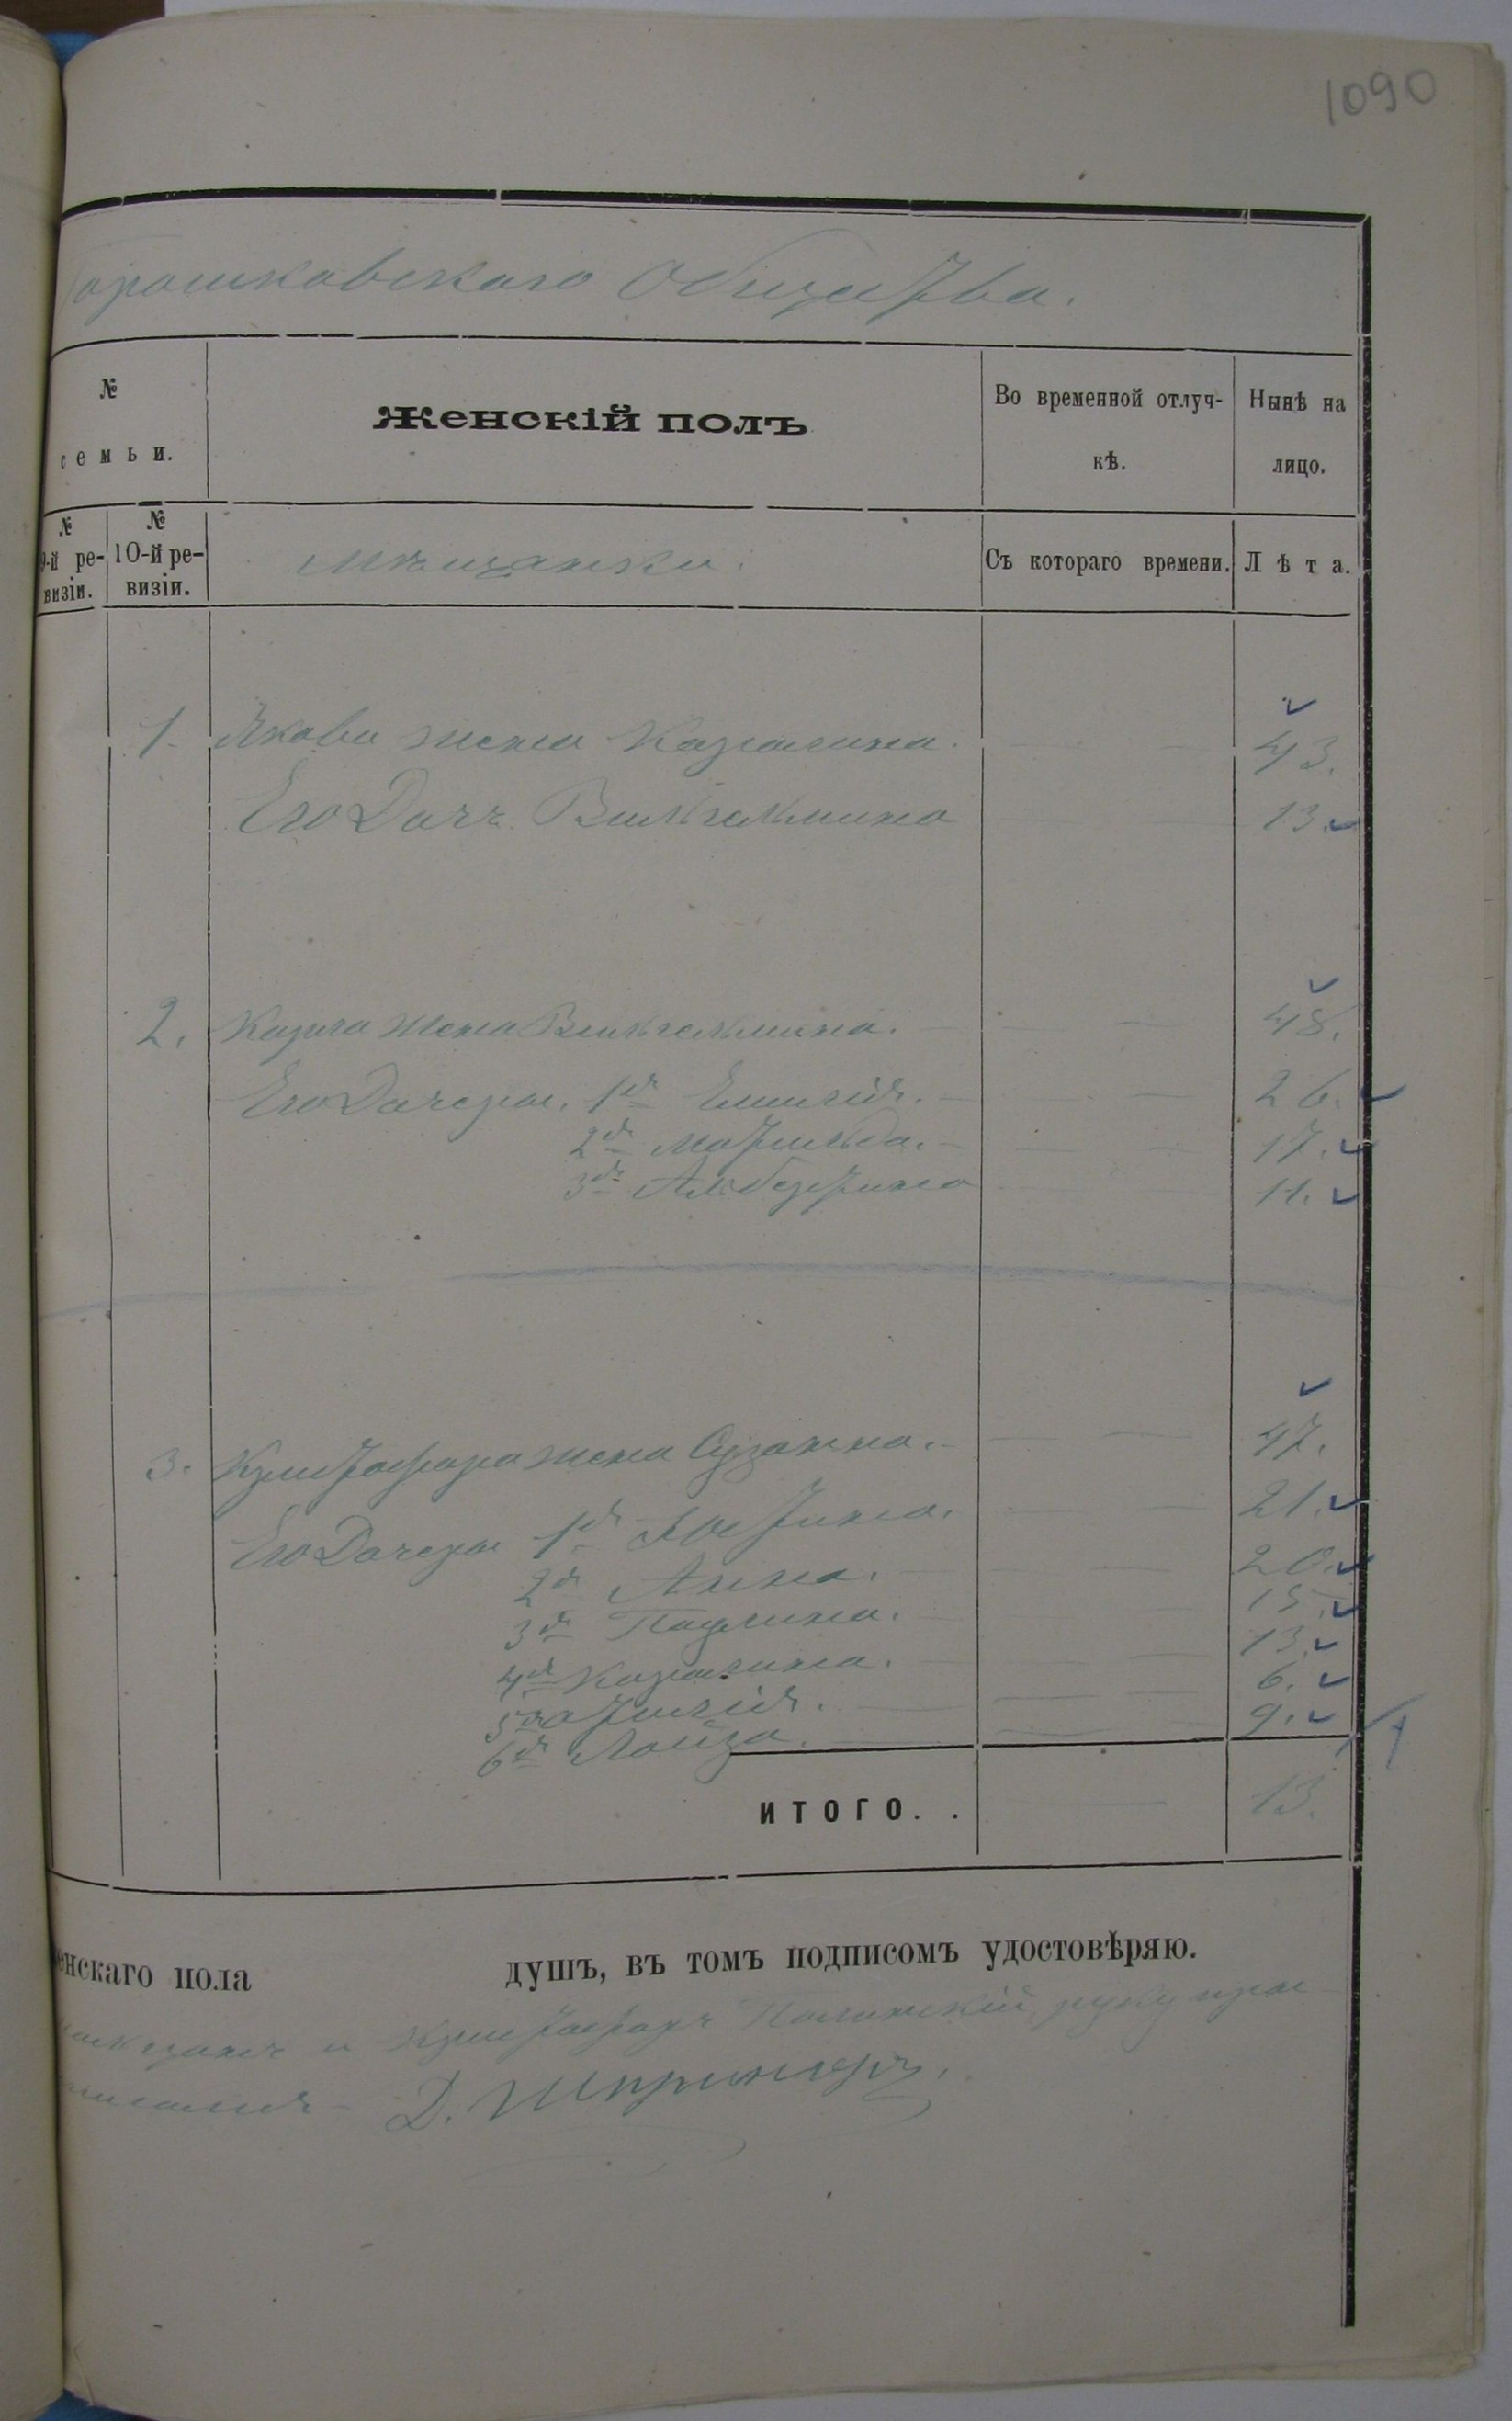 1090
Горошковскаго Общества.
№
семьи.
Женскій полъ
Во временной отлуч-
кѣ.
Нынѣ на
лицо.
№
9-й ре-
визіи.
№
10-й ре-
визіи.
Мѣщанки.
Съ котораго времени.
Лѣта.
1. Якова жена Каролина. 43.
Его Дочь Вильгельмина 13.
2. Карла жена Вильгельмина. 48.
Его Дочери. 1я Емилія. 26.
2я Матильда. 17.
3я Альбертина 11.
3. Християна жена Сузанна. 47.
Его Дочери 1я Юстина. 21.
2я Анна. 20.
3я Паулина. 15.
4я Каролина. 13.
5я Отилія. 6.
6я Лоиза. 9.
ИТОГО. . 13.
енскаго пола душъ, въ томъ подписомъ удостовѣряю.
и руку при
Д. Шпрингеръ.